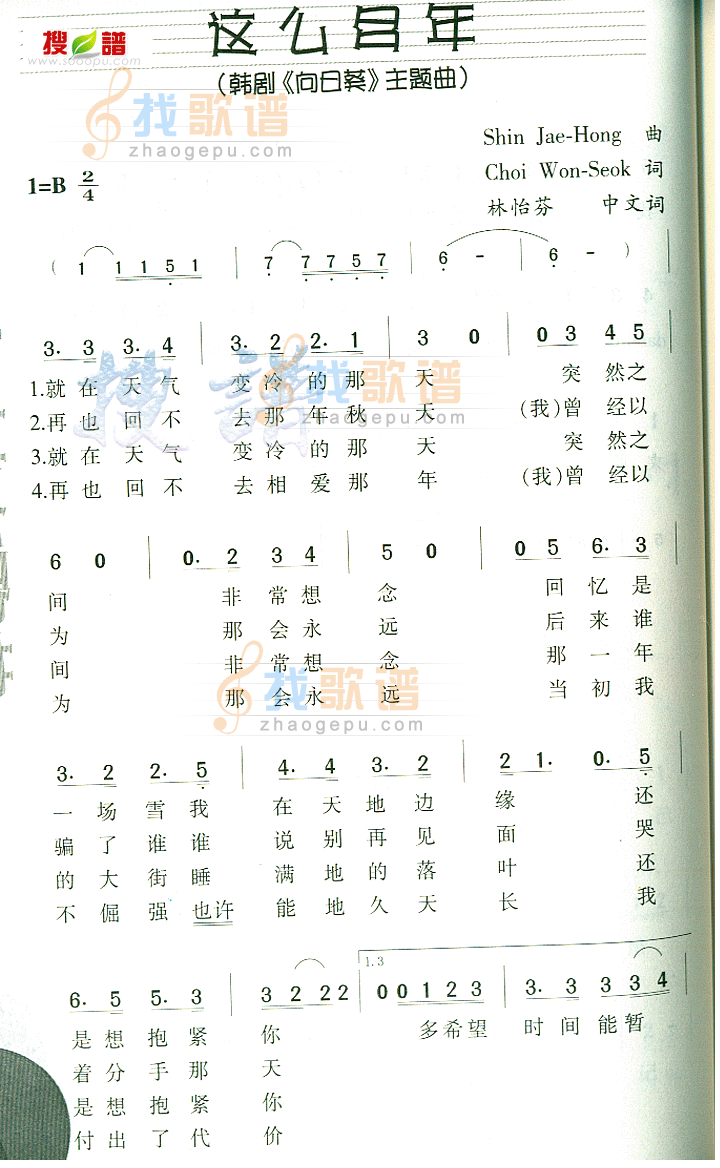 这么多年
搜谱
www.sooopu.com
(韩剧《向日葵》主题曲)
找歌谱
zhaogepu.com
Shin Jae-Hong 曲
1=B 2/4
Choi Won-Seok 词
林怡芬 中文词
( 1 1 1 5 1 | 7 7 7 5 7 | 6 - | 6 - )
3· 3 3· 4 | 3· 2 2· 1 | 3 0 | 0 3 4 5
1.就在天气 变冷的那 天 突然之
2.再也回不 去那年秋 天 (我)曾经以
3.就在天气 变冷的那 天 突然之
4.再也回不 去相爱那 年 (我)曾经以
搜谱
找歌谱
zhaogepu.com
6 0 | 0· 2 3 4 | 5 0 | 0 5 6· 3
间 非常想 念 回忆是
为 那会永 远 后来谁
间 非常想 念 那一年
为 那会永 远 当初我
找歌谱
zhaogepu.com
3· 2 2· 5 | 4· 4 3· 2 | 2 1· 0· 5
一场雪我 在天地边 缘 还
骗了谁谁 说别再见 面 哭
的大街睡 满地的落 叶 还
不倔强也许 能地久天 长 我
1.3
6· 5 5· 3 | 3 2 2 2 | 0 0 1 2 3 | 3· 3 3 3 4
是想抱紧 你 多希望 时间能暂
着分手那 天
是想抱紧 你
付出了代 价